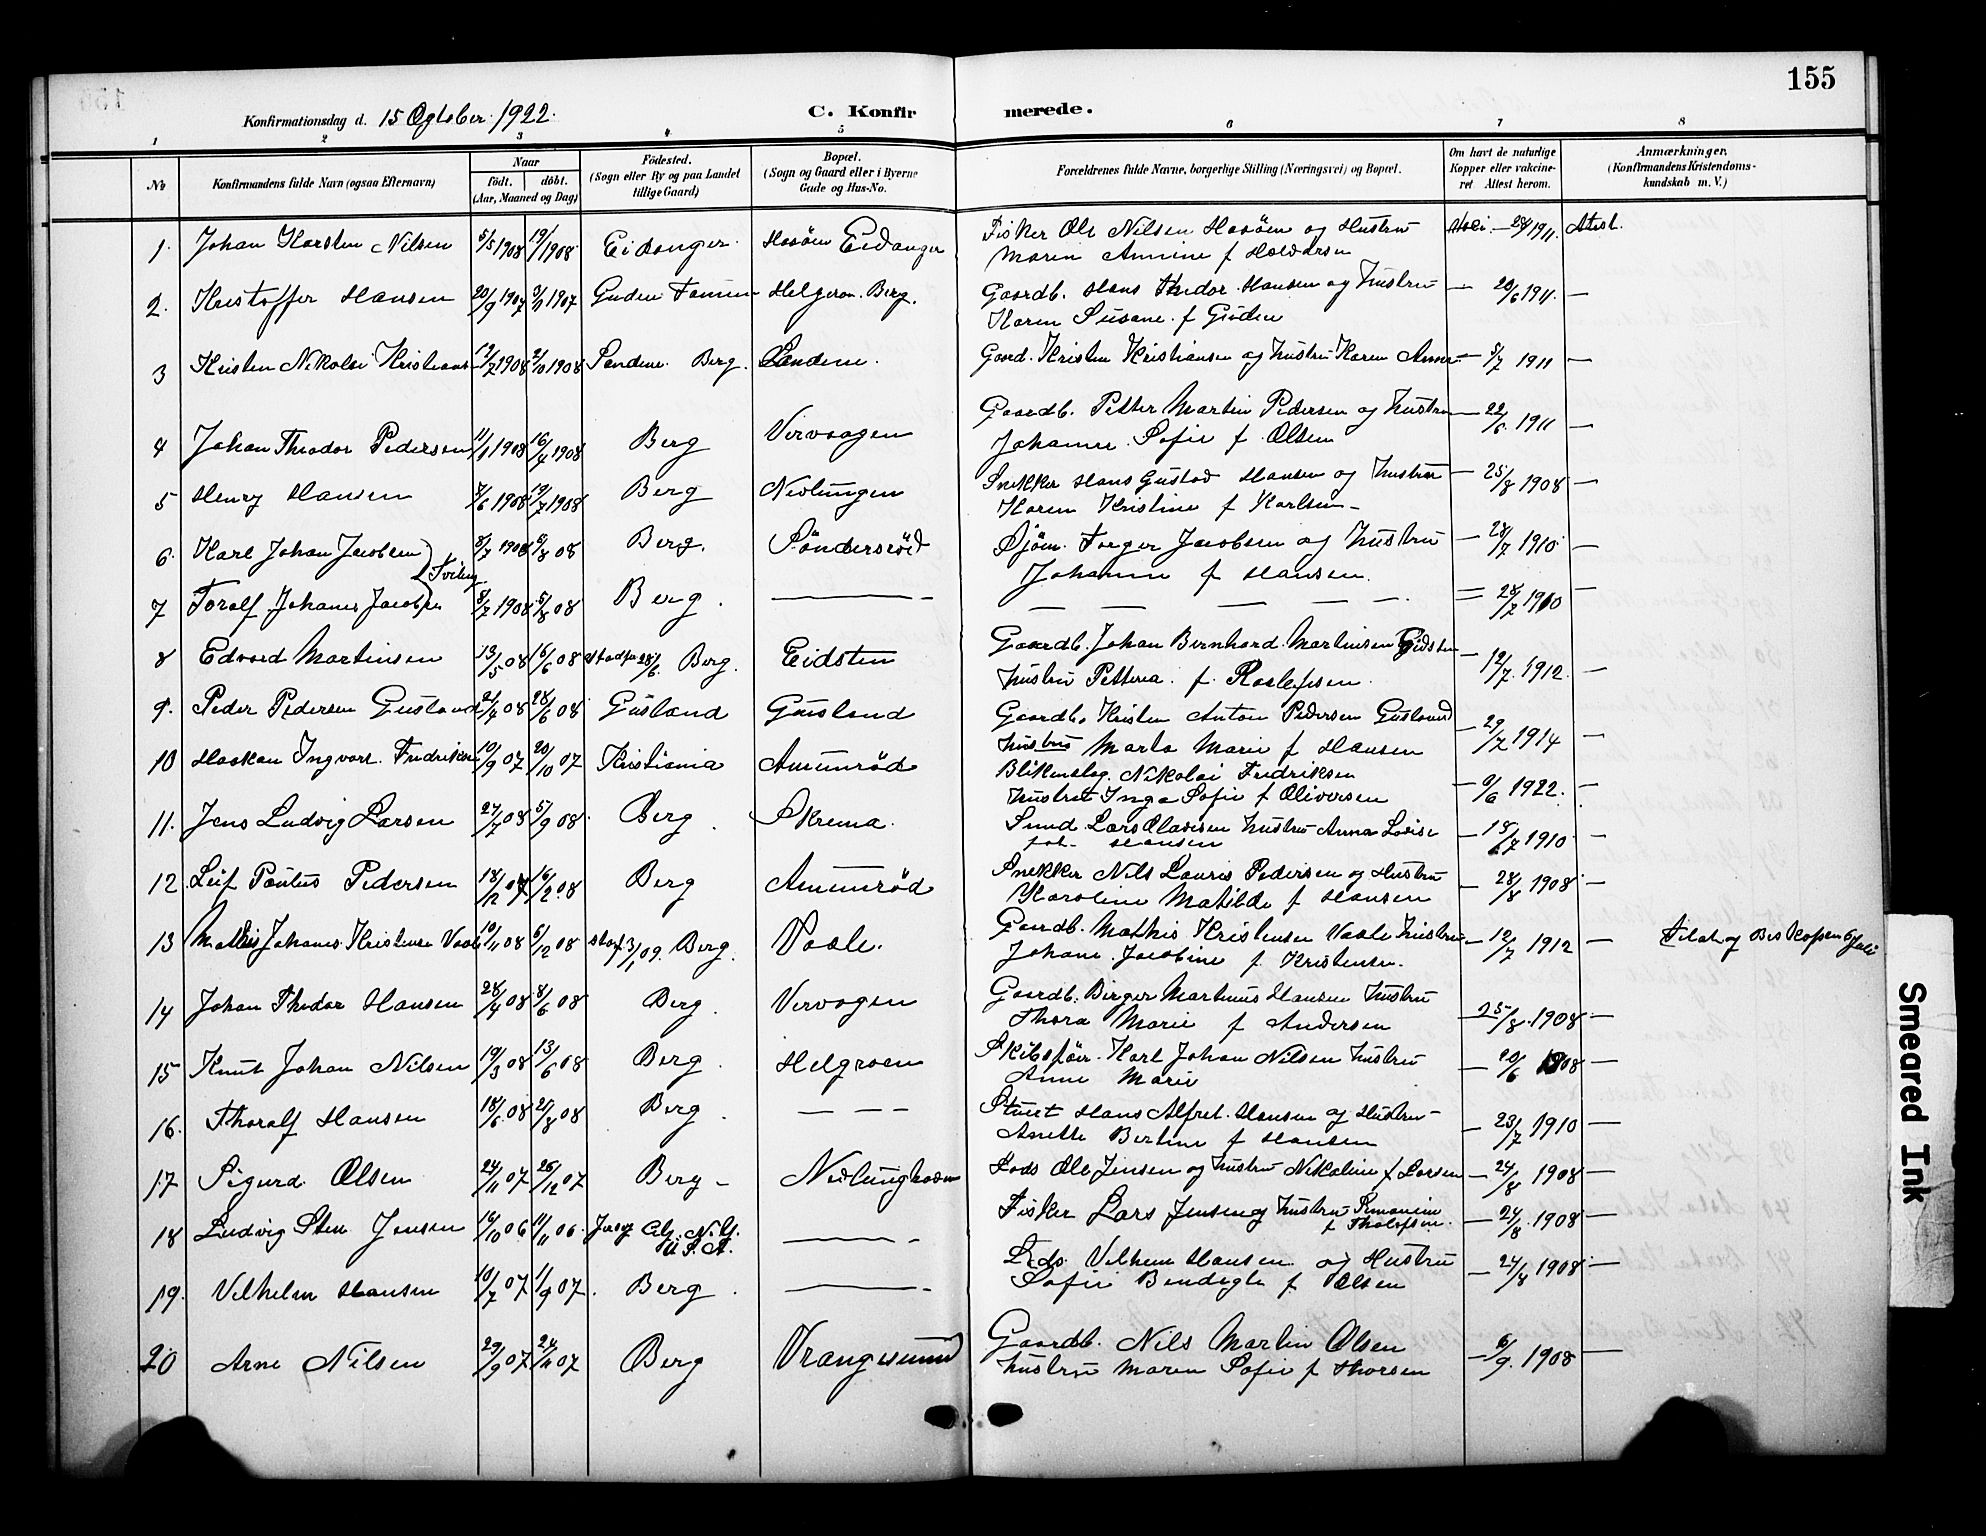 155
Konfirmationsdag d. 15 Ogtober 1922.
C. Konfirmerede.
1 2 3 4 5 6 7 8
No
Konfirmandens fulde Navn (ogsaa Efternavn)
Naar
født. døbt.
(Aar, Maaned og Dag)
Fødested.
(Sogn eller By og paa Landet
tillige Gaard)
Bopæl.
(Sogn og Gaard eller i Byerne
Gade og Hus-No.
Forældrenes fulde Navne, borgerlige Stilling (Næringsvei) og Bopæl.
Om havt de naturlige
Kopper eller vakcine-
ret Attest herom.
Anmærkninger.
(Konfirmandens Kristendoms-
kundskab m. V.)
1. Johan Karsten Nilsen 5/5 1908 19/ 1908 Eidanger. Havöen Eidanger Fisker Ole Nilsen Havöen og Hustru 1911. Attest.
Maren Annine f Halvorsen
2. Kristoffer Hansen 20/9 1907 1907 Guden Helgeroa. Berg. Gaardb. Hans Thedor Hansen og Hustru — 20/6 1911. —
Karen Susane f Guden
3 Kristen Nikolai Kristians 12/7 1908 2/10 1908 Sandene. Berg. Sandene. Gaard. Kristen Kristiansen og Hustru Karen Anne — 5/7 1911 —
4 Johan Theodor Pedersen 11/1 1908 16/4 1908 Berg Vervaagen Gaardb. Petter Martin Pedersen og Hustru — 22/6 1911 —
Johanne Sofie f. Olsen
5 Henry Hansen 7/6 1908 19/7 1908 Berg Nevlungen Snekker Hans Gustav Hansen og Hustru — 25/8 1908 —
Karen Kristine f Karlsen —
6. Karl Johan Jacobsen } Tviling 8/7 1908 5/8 08 Berg. Söndersröd Sjöm. Torger Jacobsen og Hustru — 28/7 1910 —
Johanne f Hansen.
7 Toralf Johanes Jacobsen 8/7 1908 5/8 08 Berg. — — — — — — = 28/7 1910 —
8 Edvard Martinsen 13/5 08 16/6 08 Berg. Eidsten Gaardb. Johan Bernhard Martinsen Eidsten — 12/7. 1912. —
Hustru Petteria f. Rolefsen.
9. Peder Pedersen Gusland 2/4 08 28/6 08 Gusland Gusland Gaardb. Kristen Anton Pedersen Gusland — 29/7 1914 —
Hustru Marta Marie f Hansen
10 Haakon Ingvart Fredriksen 10/9 07 20/10 07 Kristiania Amunröd Blikenslag. Nikolai Fredriksen — 9/6 1922. —
Hustru Inga Sofie f Oliversen
11. Jens Ludvig Larsen 27/7 08 5/9 08. Berg. Skrema. Smed Lars Olavsen Hustru Anna Lovise — 18/7 1910 —
Hansen
12. Leif Pontus Pedersen 18/12 07 16/2. 08 Berg Amunröd Snekker Nils Lauris Pedersen og Hustru — 28/8 1908 —
Karoline Matilde f Hansen
13 Mathis Johanes Kristensen Vaale 10/11 08 6/12 08 3/1 09. Berg. Vaale. Gaardb. Mathis Kristensen Vaale Hustru — 12/7 1912 —
Johane Jacobine f. Kristensen. Tilat af Biskopen
14 Johan Thedor Hansen 28/4 08 8/6 08 Berg. Vervagen Gaardb. Birger Martinus Hansen Hustru — 25/8. 1908 —
Thora Marie f Andersen
15 Knut Johan Nilsen 19/3 08 13/6 08 Berg. Helgroen Karl Johan Nilsen Hustru — 20/6 1908 —
Anne Marie
16. Thoralf Hansen 18/6. 08 2/8 08 Berg. — — — Stuert Hans Alfret Hansen og Hustru — — 23/7 1910 —
Anette Bertine f Hansen
17 Sigurd Olsen 24/11 07 26/12 07 Berg — Nevlunghavn Lods Ole Jensen og Hustru Nikoline f Larsen — 24/8 1908 —
18 Ludvig Sten Jensen 16/10 06 11/11 06. Jersy City. N.Y. — Fisker Lars Jensen og Hustru — 24/8. 1908 —
U.S.A. f Tholefsen.
19. Vilhelm Hansen 10/7 07 11/9 07. Berg. — Lods. Vilhem Hansen og Hustru — 24/8 1908 —
Sofie Bendigte f Olsen
20 Arne Nilsen 29/9 07 24/11 07 Berg Vrangesund Gaardb. Nils Martin Olsen — 6/9. 1908 —
Hustru Maren Sofie f Thorsen
Smeared Ink